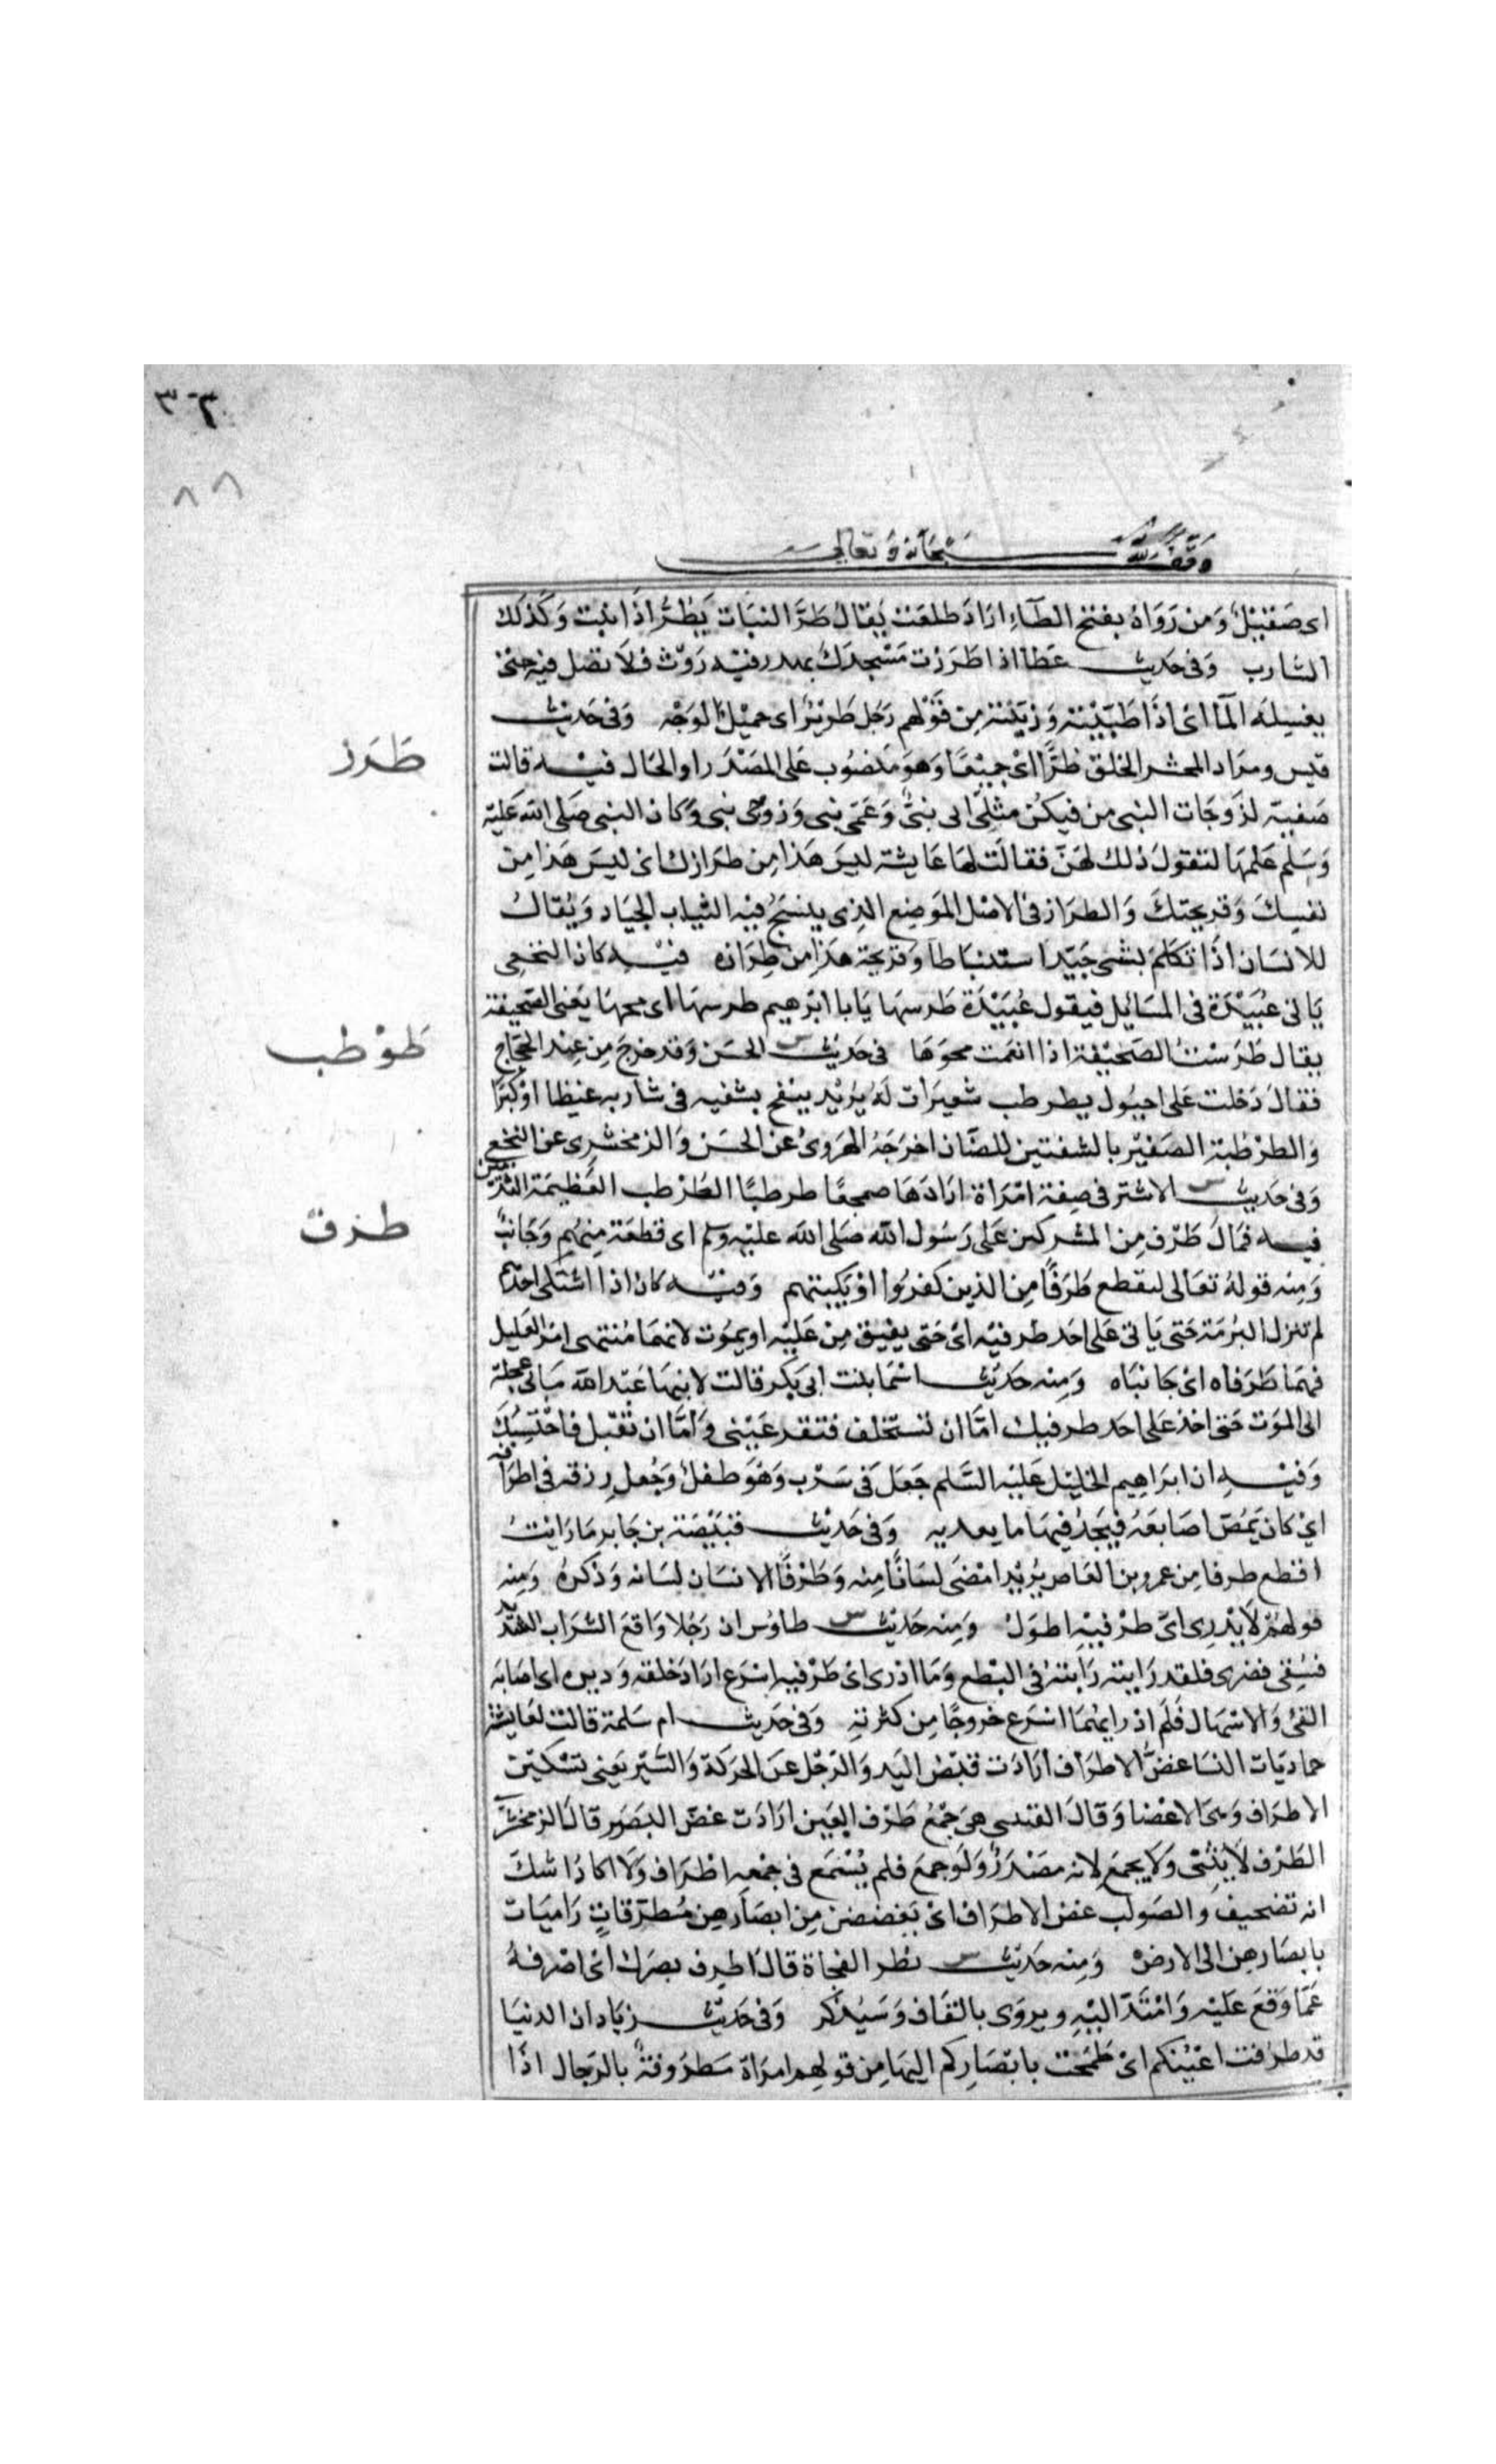 ٣٠٣
٨٨
وقف لله سبحانه وتعالى
اى صقيل ومن رواه بفتح الطاء اراد طلعت يقال طر النبات يطر اذا نبت وكذلك
الشارب وفى حديث عطا اذا طررت مسجدك بمدر فيه روث فلا تصل فيه حتى
يغسله الما اى اذا طينته وزينته من قولهم رجل طرير اى جميل الوجه وفى حديث
قيس ومراد المحشر الخلق طرا اى جميعا وهو منصوب على المصدر او الحال فيه قالت
طرز
صفية لزوجات النبى من فيكن مثلى ابى نبى وعمى نبى وزوجى نبى وكان النبى صلى الله عليه
وسلم علمها لتقول ذلك لهن فقالت لها عايشة ليس هذا من طرازك اى ليس هذا من
نفسك وقريحتك والطراز فى الاصل الموضع الذى ينسج فيه الثياب الجياد ويقال
للانسان اذا تكلم بشى جيد استنباطا وقريحة هذا من طرازه فيه كان النخعى
ياتى عبيدة فى المسايل فيقول عبيدة طرسها يابا ابرهيم طرسها اى محها يعنى الصحيفة
يقال طرست الصحيفة اذا انعمت محوها فى حديث الحسن وقد خرج من عند الحجاج
طوطب
فقال دخلت على احيول يطرطب شعيرات له يريد ينفخ بشفيه فى شاربه غيظا او كبرا
والطرطبة الصفير بالشفتين للضان اخرجه الهروى عن الحسن والزمخشرى عن النخعى
وفى حديث الاشتر فى صفة امراة ارادها صمعجا طرطبا الطرطب العظيمة الثديين
فيه فمال طرف من المشركين على رسول الله صلى الله عليه وسلم اى قطعة منهم وجانب
طرف
ومنه قوله تعالى ليقطع طرفا من الذين كفروا او يكبتهم وفيه كان اذا اشتكى احدهم
لم تنزل البرمة حتى ياتى على احد طرفيه اى حتى يفيق من عليه او يموت لانهما منتهى امر العليل
فهما طرفاه اى جانباه ومنه حديث اسما بنت ابى بكر قالت لابنها عبد الله مابى عجلة
الى الموت حتى اخذ على احد طرفيك اما ان تستخلف فتقر عينى واما ان تقتل فاحتسبك
وفيه ان ابراهيم الخليل عليه السلم جعل فى سرب وهو طفل وجعل رزقه فى اطرافه
اى كان يمص اصابعه فيجد فيها ما يغذيه وفى حديث قبيصة بن جابر ما رايت
اقطع طرفا من عمرو بن العاص يريد امضى لسانا منه وطرفا الانسان لسانه وذكره ومنه
قولهم لا يدرى اى طرفيه اطول ومنه حديث طاوس ان رجلا واقع الشراب الشديد
فسقى فضرى فلقد رايته فى النطع وما ادرى اى طرفيه اسرع اراد حلقه ودبره اى اصابه
القئ والاسهال فلم ادر ايهما اسرع خروجا من كثرته وفى حديث ام سلمة قالت لعايشة
حماديات النسا غض الاطراف ارادت قبض اليد والرجل عن الحركة والسير يعنى تسكين
الاطراف وهى الاعضا وقال القتيبى هى جمع طرف العين ارادت غض البصر قال الزمخشرى
الطرف لا يثنى ولا يجمع لانه مصدر ولو جمع فلم يسمع فى جمعه اطراف ولا اكاد اشك
انه تصحيف والصواب غض الاطراق اى يغضضن من ابصارهن مطرقات راميات
بابصارهن الى الارض ومنه حديث نظر الفجاة قال اطرف بصرك اى اصرفه
عما وقع عليه وامتد اليه ويروى بالقاف وسيذكر وفى حديث زياد ان الدنيا
قد طرفت اعينكم اى طمحت بابصاركم اليها من قولهم امراة مطروفة بالرجال اذا